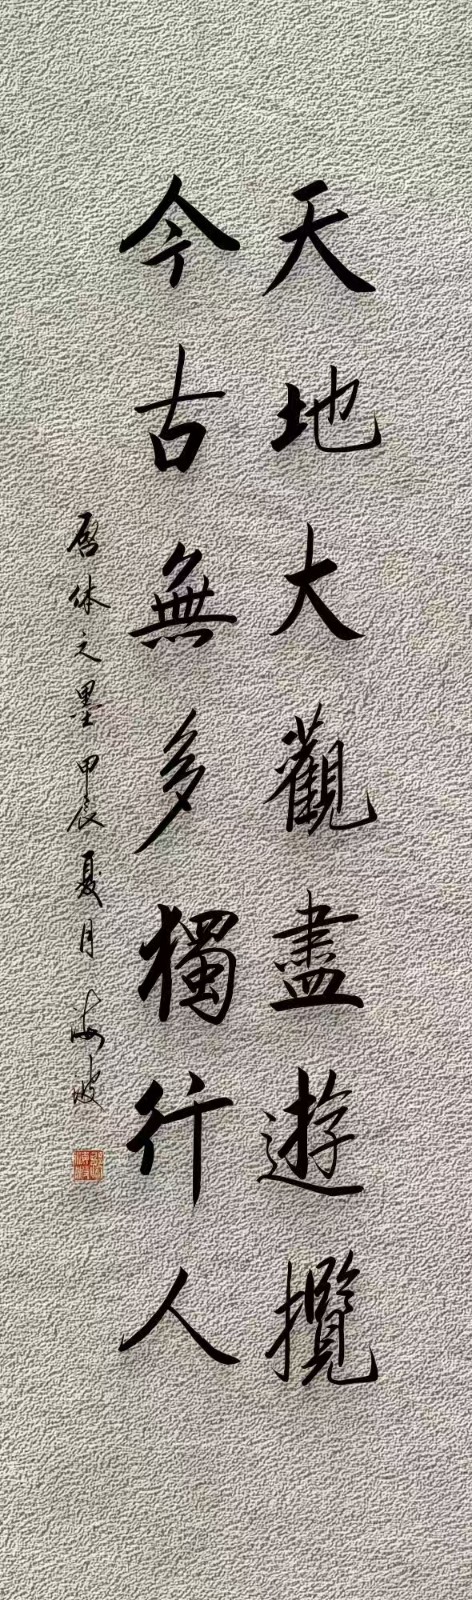 天地大觀盡遊攬
今古無多獨行人
啓休之墨甲辰夏月海波